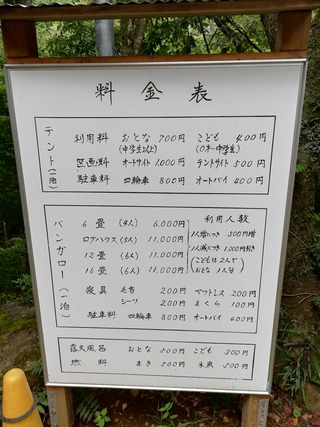 料金表
テント(一泊)
利用料 おとな 700円 こども 400円
(中学生以上) (0才~中学生)
区画料 オートサイト 1,000円 テントサイト 500円
駐車料 四輪車 800円 オートバイ 400円
バンガロー(一泊)
6畳 (4人) 6,000円
ログハウス (5人) 11,000円
12畳 (6人) 11,000円
16畳 (6人) 11,000円
利用人数
1人増につき 500円増
1人減につき 1,000円引き
(こどもは2人で
おとな 1人分)
寝具 毛布 200円 ペットレス 200円
シーツ 200円 まくら 100円
駐車料 四輪車 800円 オートバイ 400円
露天風呂 おとな 500円 こども 300円
燃料 まき 500円 木炭 500円